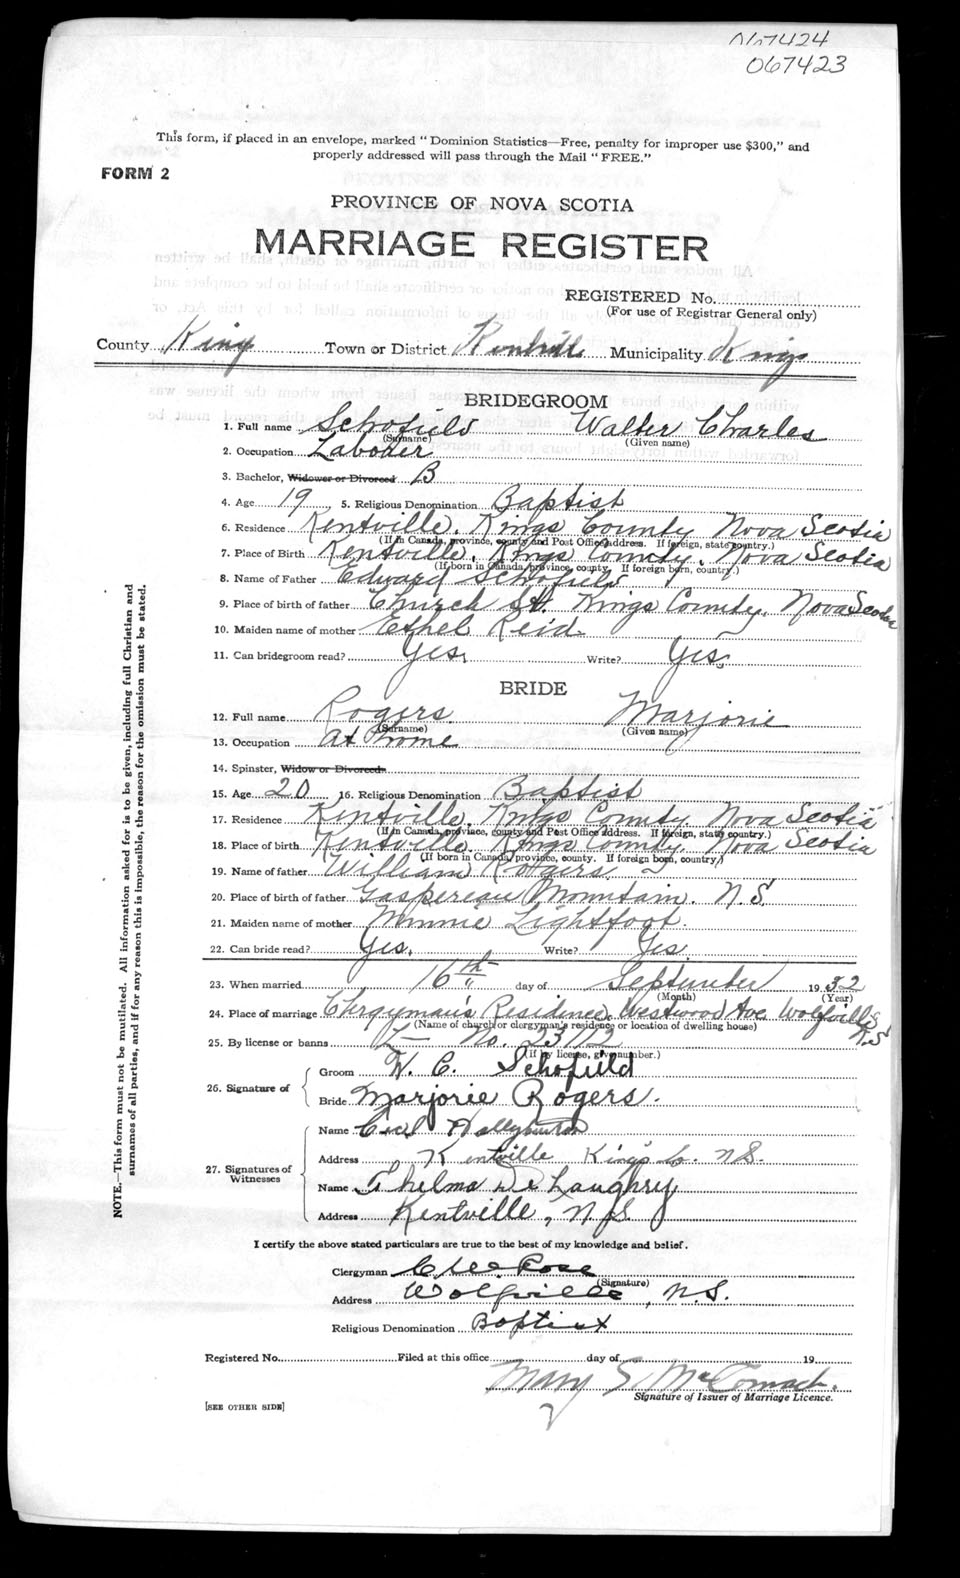 067424
067423
This form, if placed in an envelope, marked "Dominion Statistics—Free, penalty for improper use $300," and
properly addressed will pass through the Mail "FREE."
FORM 2
PROVINCE OF NOVA SCOTIA
MARRIAGE REGISTER
REGISTERED No.
(For use of Registrar General only)
County Kings Town or District Kentville Municipality Kings
BRIDEGROOM
1. Full name Schofield Walter Charles
(Surname) (Given name)
2. Occupation Laborer
3. Bachelor, Widower or Divorced B
4. Age 19 5. Religious Denomination Baptist
6. Residence Kentville, Kings County Nova Scotia
(If in Canada, province, county and Post Office address. If foreign, state country.)
7. Place of Birth Kentville, Kings County, Nova Scotia
(If born in Canada, province, county. If foreign born, country.)
8. Name of Father Edward Schofield
9. Place of birth of father Church St. Kings County, Nova Scotia
10. Maiden name of mother Ethel Reid
11. Can bridegroom read? Yes. Write? Yes.
BRIDE
12. Full name Rogers Marjorie
(Surname) (Given name)
13. Occupation at home
14. Spinster, Widow or Divorced
15. Age 20 16. Religious Denomination Baptist
17. Residence Kentville, Kings County Nova Scotia
(If in Canada, province, county and Post Office address. If foreign, state country.)
18. Place of birth Kentville, Kings County, Nova Scotia
(If born in Canada, province, county. If foreign born, country.)
19. Name of father William Rogers
20. Place of birth of father Gaspereau Mountain. N.S.
21. Maiden name of mother Minnie Lightfoot.
22. Can bride read? Yes. Write? Yes.
23. When married 16th day of September 1952
(Month) (Year)
24. Place of marriage Clergyman's Residence, Westwood Ave Wolfville N.S
(Name of church or clergyman's residence or location of dwelling house)
25. By license or banns L— No. 23712
(If by license, give number.)
26. Signature of
Groom W. C. Schofield
Bride Marjorie Rogers.
27. Signatures of Witnesses
Name
Address Kentville Kings Co. N.S.
Name Thelma De Laughry
Address Kentville, N.S.
I certify the above stated particulars are true to the best of my knowledge and belief.
Clergyman Rose
(Signature)
Address Wolfville, N.S.
Religious Denomination Baptist
Registered No. Filed at this office day of 19
Mary S. McCormack.
Signature of Issuer of Marriage Licence.
[SEE OTHER SIDE]
NOTE.—This form must not be mutilated. All information asked for is to be given, including full Christian and
surnames of all parties, and if for any reason this is impossible, the reason for the omission must be stated.